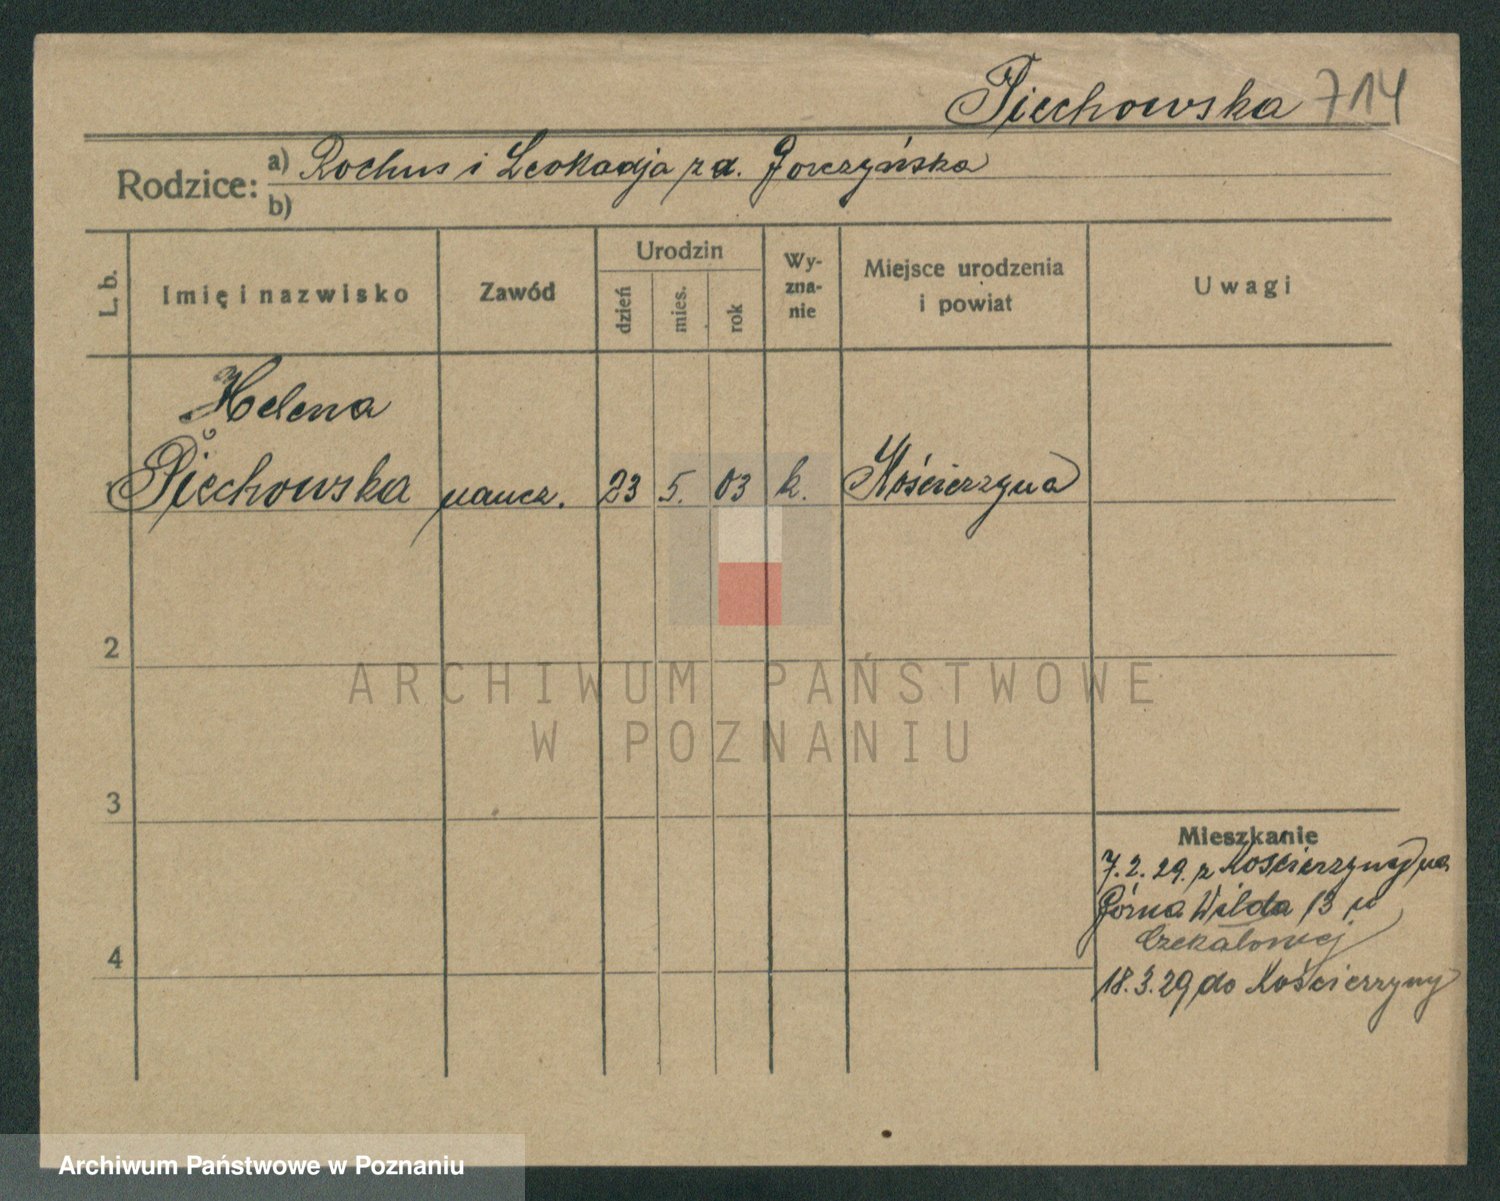 Piechowska 714
Rodzice: a) Rochus i Leokadja z d. Gorczyńska
b)
L. b. Imię i nazwisko Zawód Urodzin dzień mies. rok Wy-zna-nie Miejsce urodzenia i powiat Uwagi
Helena
Piechowska naucz. 23 5. 03 k. Kościerzyna
2
ARCHIWUM PAŃSTWOWE
W POZNANIU
3
Mieszkanie
7.2.29. z Kościerzyny na
Górna Wilda 13 u
Czekalowej
4
18.3.29 do Kościerzyny
Archiwum Państwowe w Poznaniu